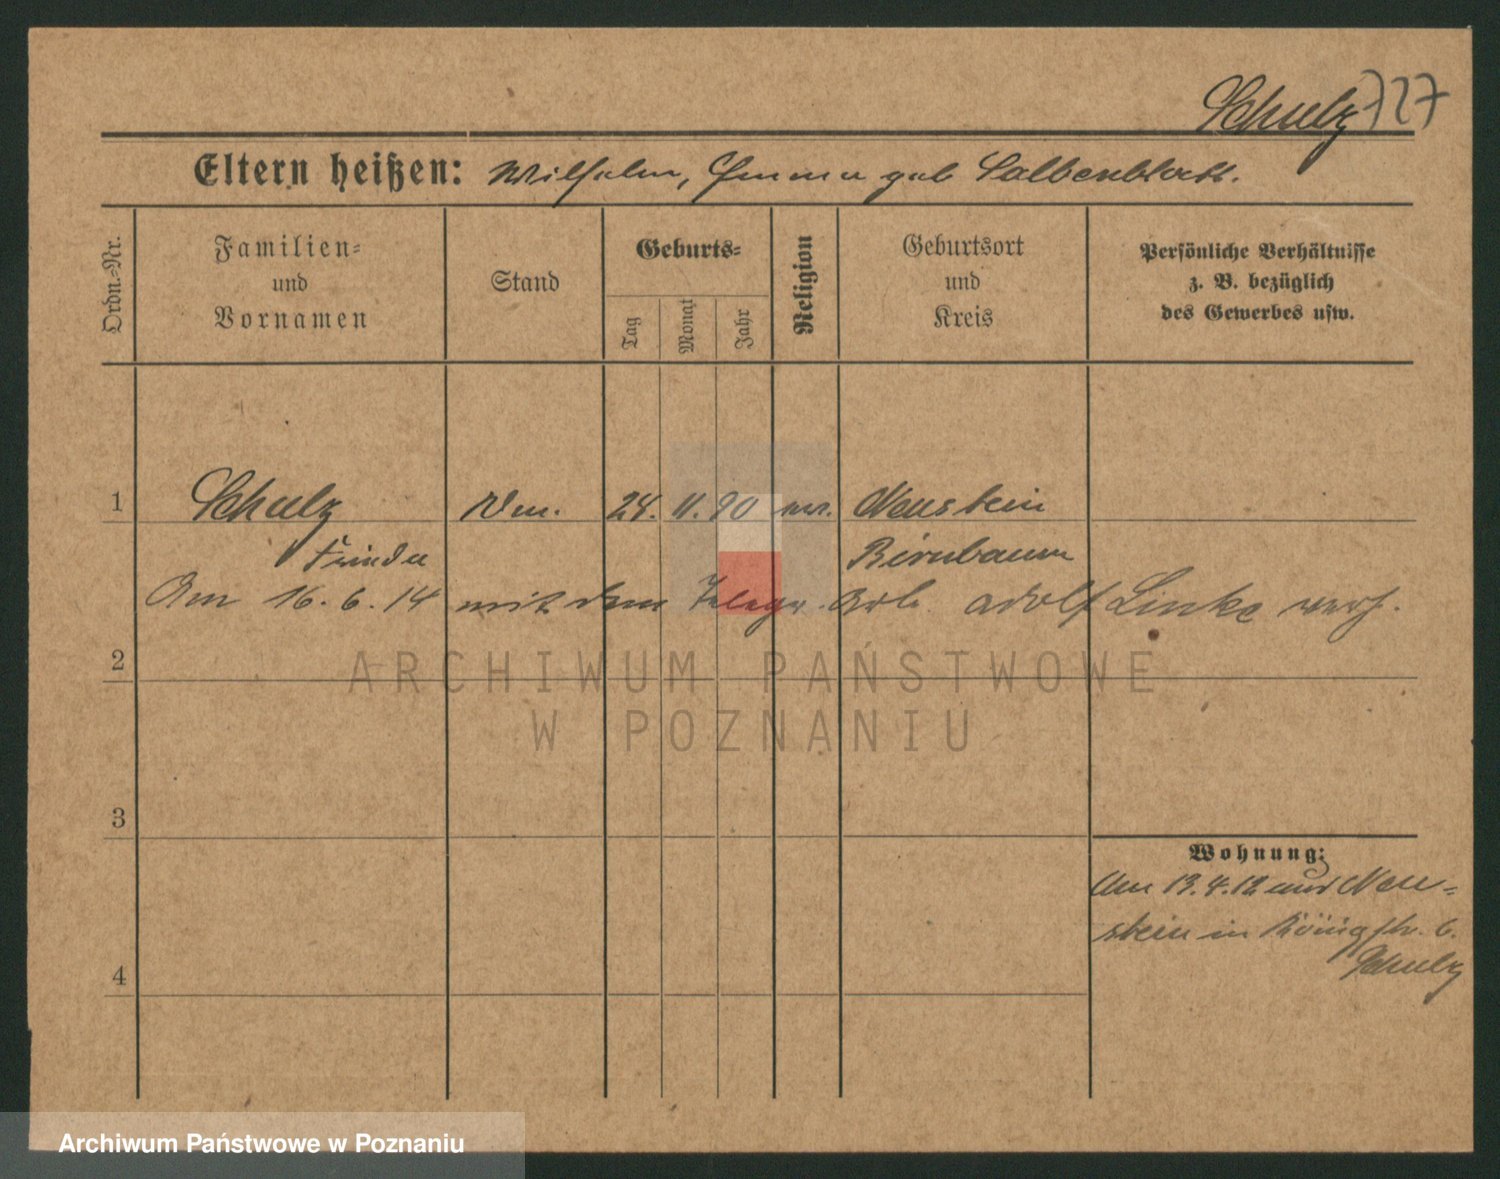 Schulz 727
Eltern heißen: Wilhelm, Emma geb Salbenblatt.
Ordn.-Nr.
Familien-
und
Vornamen
Stand
Geburts-
Tag
Monat
Jahr
Religion
Geburtsort
und
Kreis
Persönliche Verhältnisse
z. B. bezüglich
des Gewerbes usw.
1 Schulz 24. 11. 90 ev. Neustein
Frieda Birnbaum
Am 16. 6. 14 mit dem Telegr. Arb. Adolf Linke verh.
2
ARCHIWUM PAŃSTWOWE
W POZNANIU
3
Wohnung:
Am 13.4.12 aus Neu-
stein in Königstr. 6.
Schulz
4
Archiwum Państwowe w Poznaniu